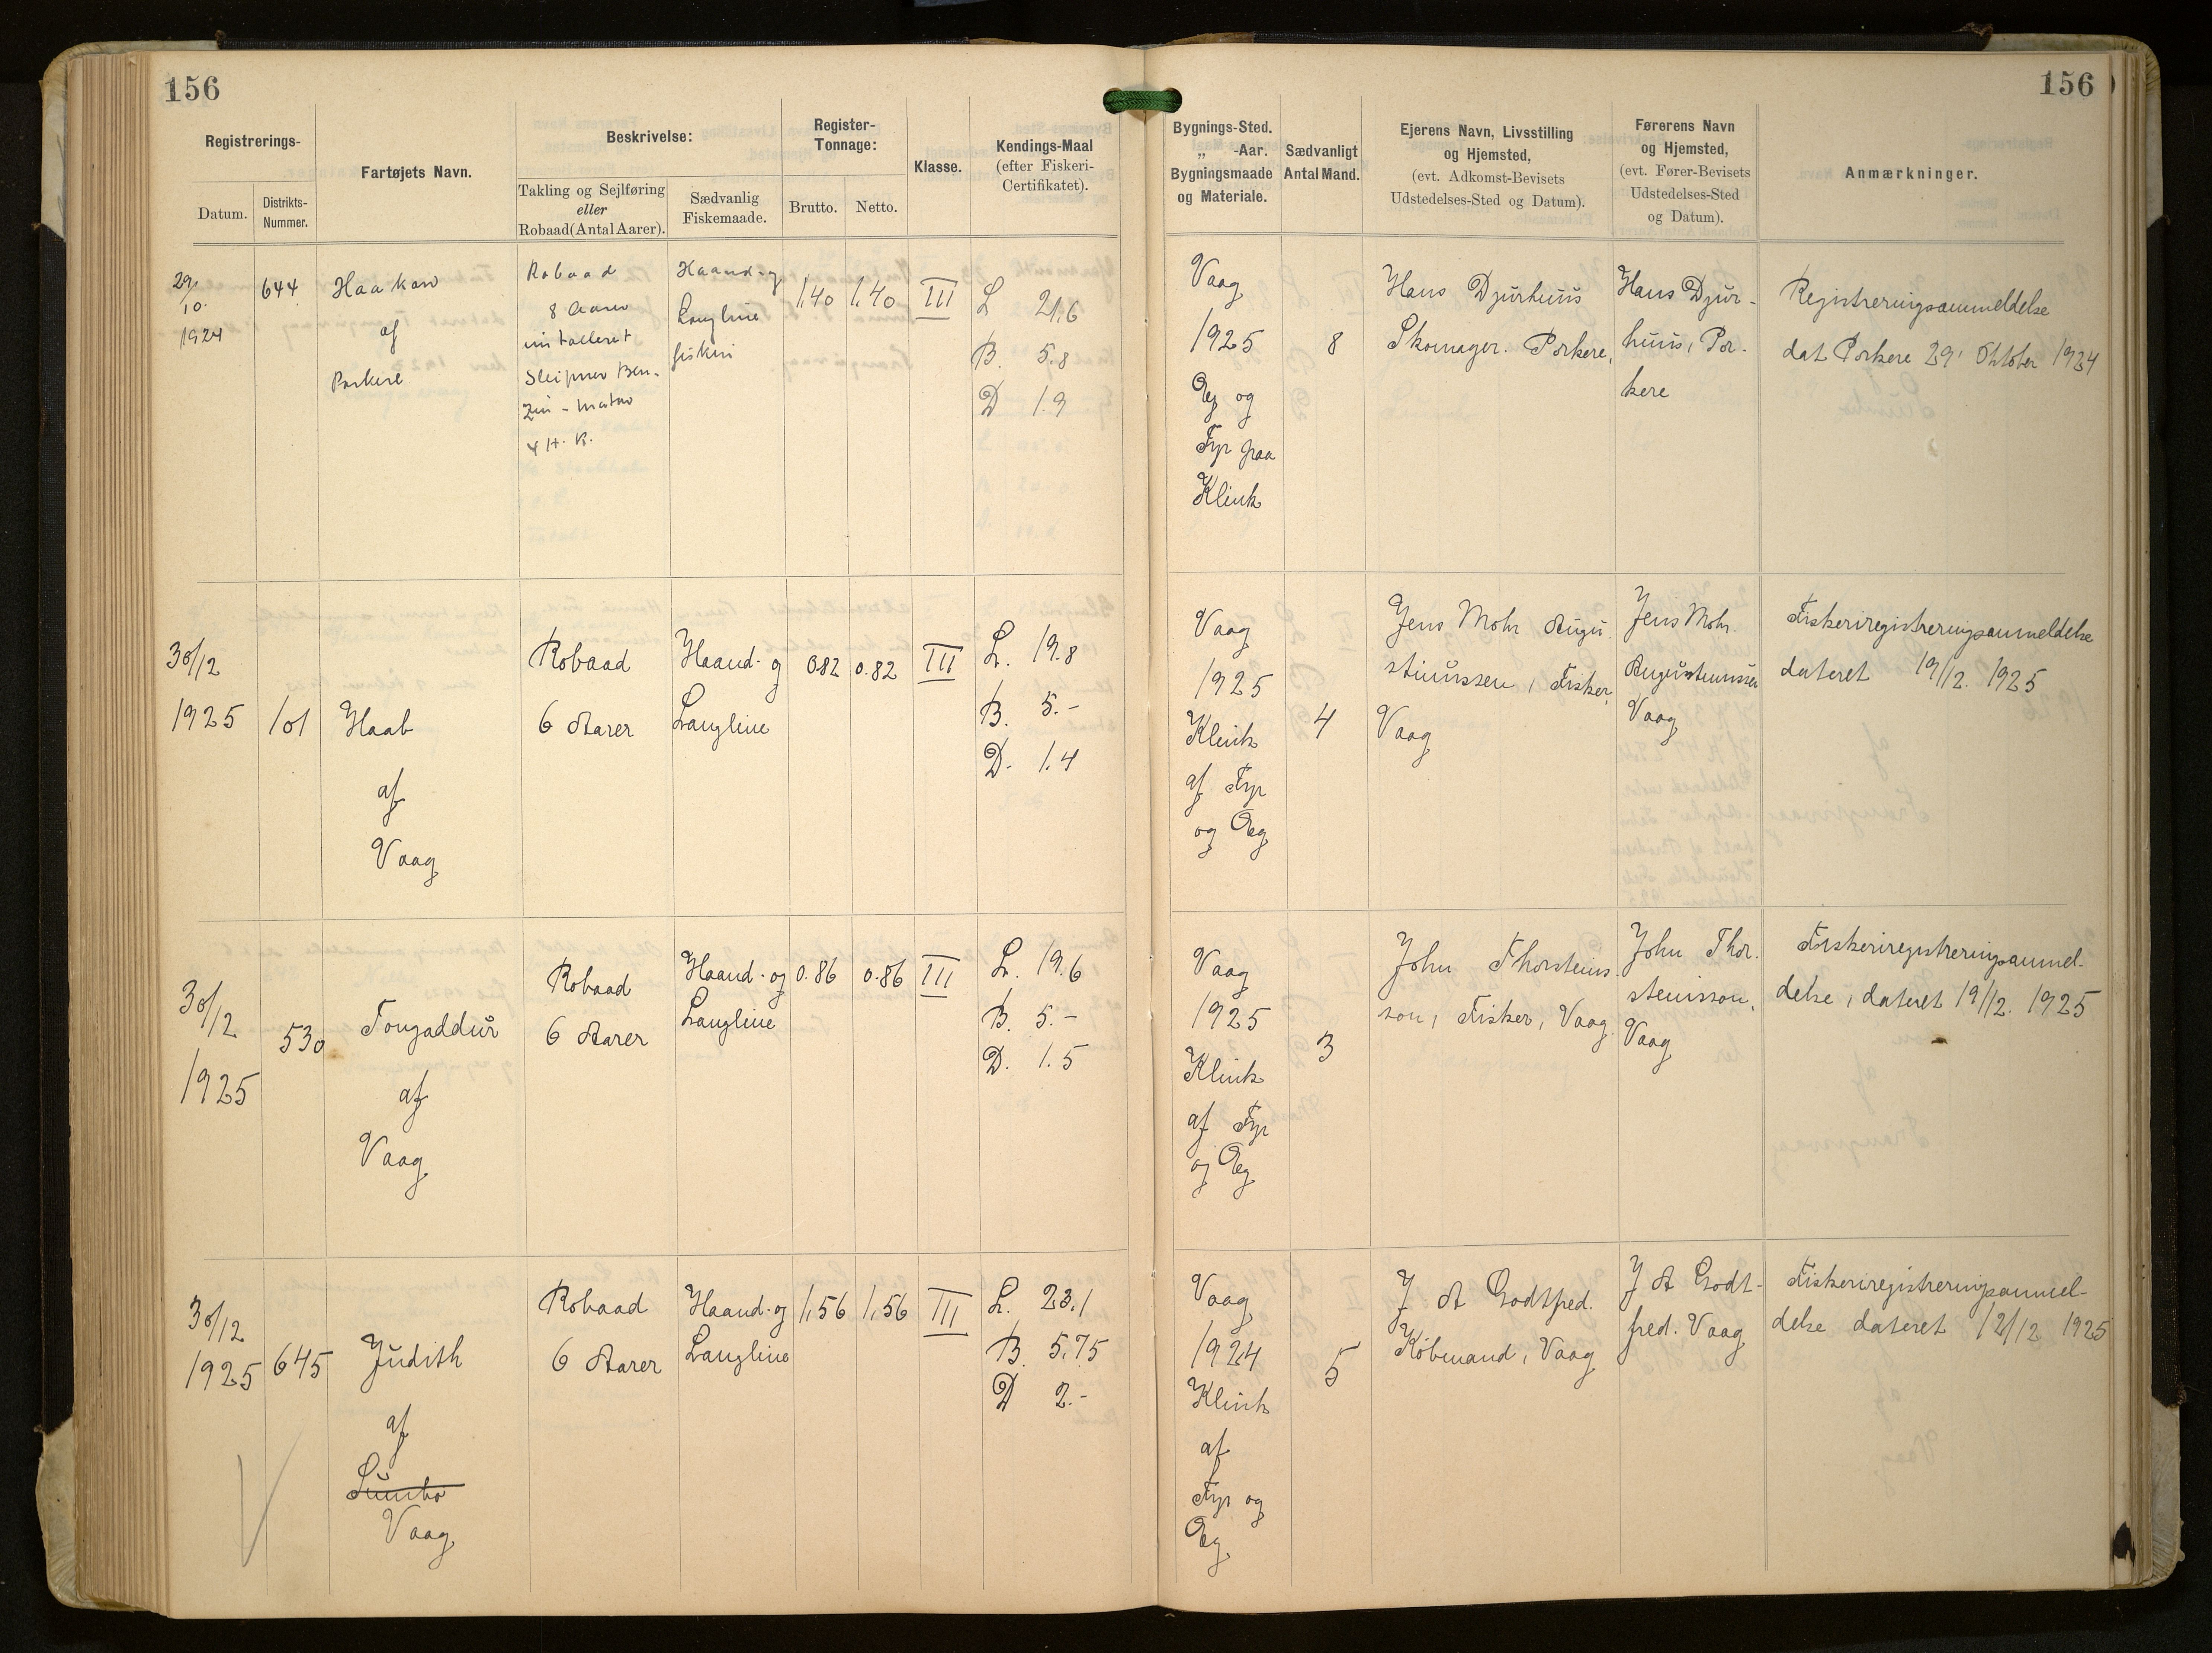 156
156
Registrerings-
Datum.
Distrikts-
Nummer.
Fartøjets Navn.
Beskrivelse:
Takling og Sejlføring
eller
Robaad (Antal Aarer).
Sædvanlig
Fiskemaade.
Register-
Tonnage:
Brutto.
Netto.
Klasse.
Kendings-Maal
(efter Fiskeri-
Certifikatet).
Bygnings-Sted.
„ -Aar.
Bygningsmaade
og Materiale.
Sædvanligt
Antal Mand.
Ejerens Navn, Livsstilling
og Hjemsted,
(evt. Adkomst-Bevisets
Udstedelses-Sted og Datum).
Førerens Navn
og Hjemsted,
(evt. Fører-Bevisets
Udstedelses-Sted
og Datum).
Anmærkninger.
29/
10.
1924
644
Haakon
af
Porkere
Robaad
8 Aarer
installeret
Sleipner Ben-
zin-motor
4 H. K.
Haand- og
Langline
fiskeri
1,40
1,40
III
L 21,6
B. 5.8
D 1.9
Vaag
1925
Eg og
Fyr paa
Klink
8
Hans Djurhuus
Skomager. Porkere,
Hans Djur-
huus, Por-
kere
Registreringsanmeldelse
dat Porkere 29' Oktober 1924
30/12
1925
101
Haab
af
Vaag
Robaad
6 Aarer
Haand- og
Langline
0.82
0.82
III
L. 19.8
B. 5.-
D. 1.4
Vaag
1925
Klink
af Fyr
og Eg
4
Jens Mohr Augu-
stinussen, Fisker,
Vaag
Jens Mohr.
Augustinussen
Vaag
Fiskeriregistreringsanmeldelse
dateret 19/12. 1925
30/12
1925
530
Tongaddur
af
Vaag
Robaad
6 Aarer
Haand- og
Langline
0.86
0.86
III
L. 19.6
B. 5.-
D. 1.5
Vaag
1925
Klink
af Fyr
og Eg
3
John Thorsteins-
son, Fisker, Vaag
John Thor-
steinsson,
Vaag
Fiskeriregistreringsanmel-
delse, dateret 19/12. 1925
30/12
1925
645
Judith
af
Sumbø
Vaag
Robaad
6 Aarer
Haand- og
Langline
1,56
1,56
III
L. 23,1
B. 5,75
D 2.-
Vaag
1924
Klink
af
Fyr og
Eg
5
J A Godtfred.
Købmand, Vaag
J A Godt-
fred. Vaag
Fiskeriregistreringsanmel-
delse dateret 12/12 1925